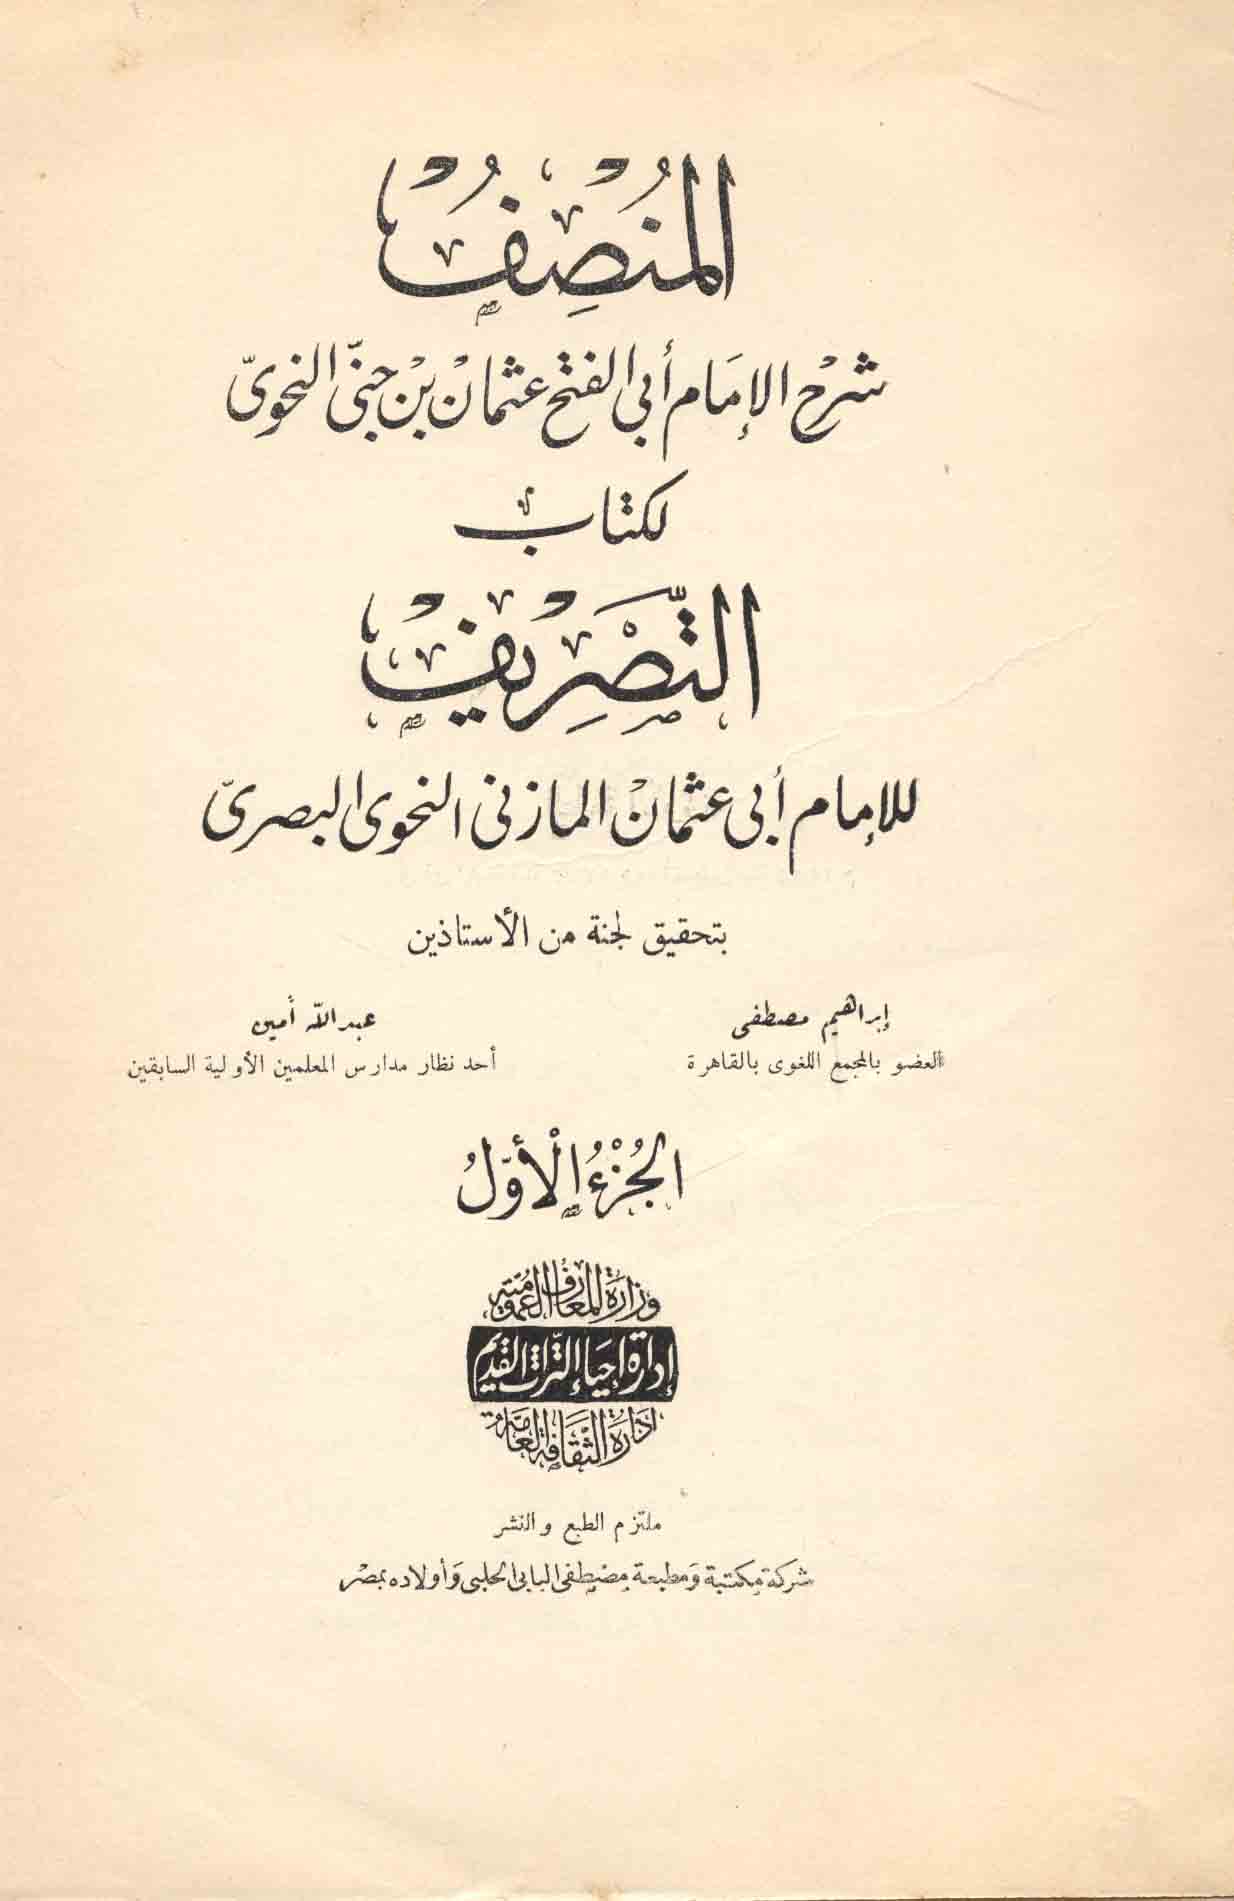 المُنْصِف
شرح الإمام أبي الفتح عثمان بن جنّى النحوىّ
لكتاب
التّصْرِيف
للإمام أبى عثمان المازنى النحوى البصرىّ
بتحقيق لجنة من الأستاذين
إبراهيم مصطفى
العضو بالمجمع اللغوى بالقاهرة
عبد الله أمين
أحد نظار مدارس المعلمين الأولية السابقين
الجُزْءُ الْأوّلُ
وزارة المعارف العمومية
إدارة إحياء التراث القديم
إدارة الثقافة العامة
ملتزم الطبع والنشر
شركة مكتبة ومطبعة مصطفى البابى الحلبى وأولاده بمصر